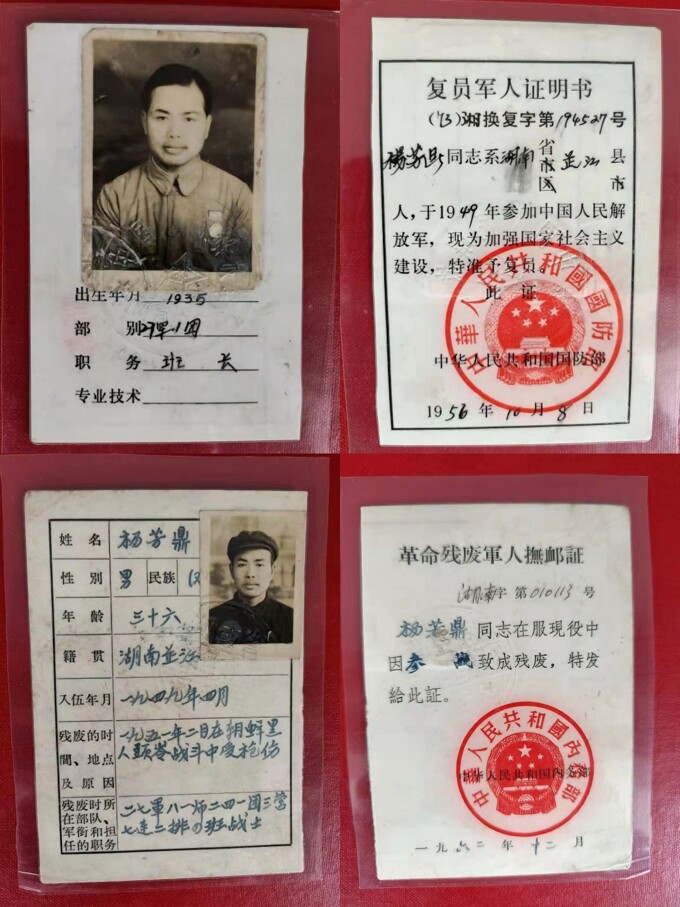 出生年月 1935
部 别 27军241团
职 务 班 长
专业技术
复员军人证明书
(73)湘换复字第194527号
杨芳鼎同志系湖南省市区芷江县市
人,于1949年参加中国人民解
放军,现为加强国家社会主义
建设,特准予复员。
此 证
中华人民共和国国防部
中華人民共和國國防部
1956年10月8日
姓 名 杨芳鼎
性 别 男 民族 汉
年 龄 三十六
籍 贯 湖南芷江
入伍年月 一九四九年四月
残废的时間、地点及原因
一九五一年二月在朝鲜黑
人頭岺战斗中受枪伤
残废时所在部队、軍銜和担任的职务
二七軍八一师二四一団三营
七连二排四班战士
革命残废軍人撫邮証
湖南字 第010113号
杨芳鼎同志在服现役中
因参战致成残废,特发
給此証。
中华人民共和国内务部
中華人民共和國內務部
一九六二年十二月